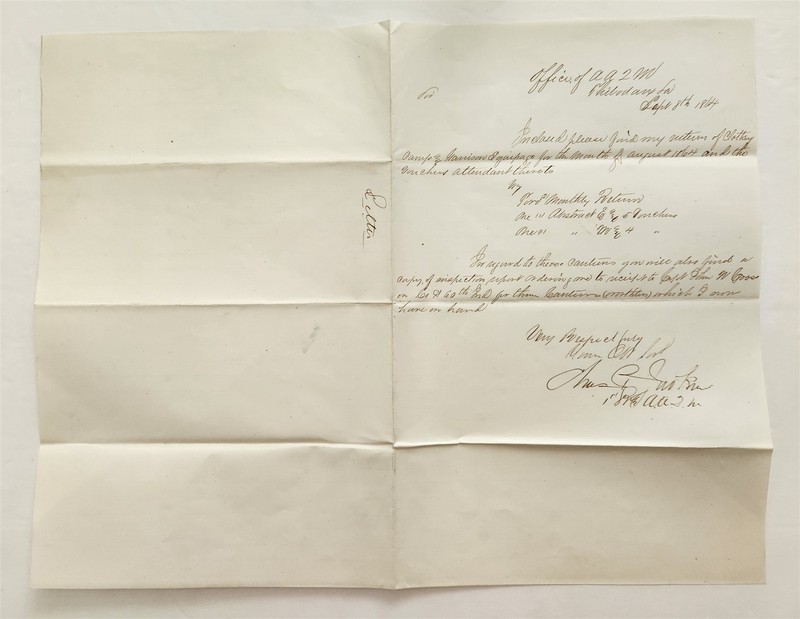 Office of A A Q M
Thibodaux La
Sept 8th 1864
Sir
Inclosed please find my return of Clothing
Camp & Garrison Equipage for the Month of August 1864 and the
Vouchers attendant thereto
My Monthly Return
One " Abstract E & 5 Vouchers
One " " M & 4 "
In regard to those Canteens you will also find a
copy of inspection report ordering me to receipt to Capt John W
on Co 60th Ind for three Canteens (worthless) which I now
have on hand
Very Respectfuly
Your Obt Svt
Chas G
1st A A Q M
Letter